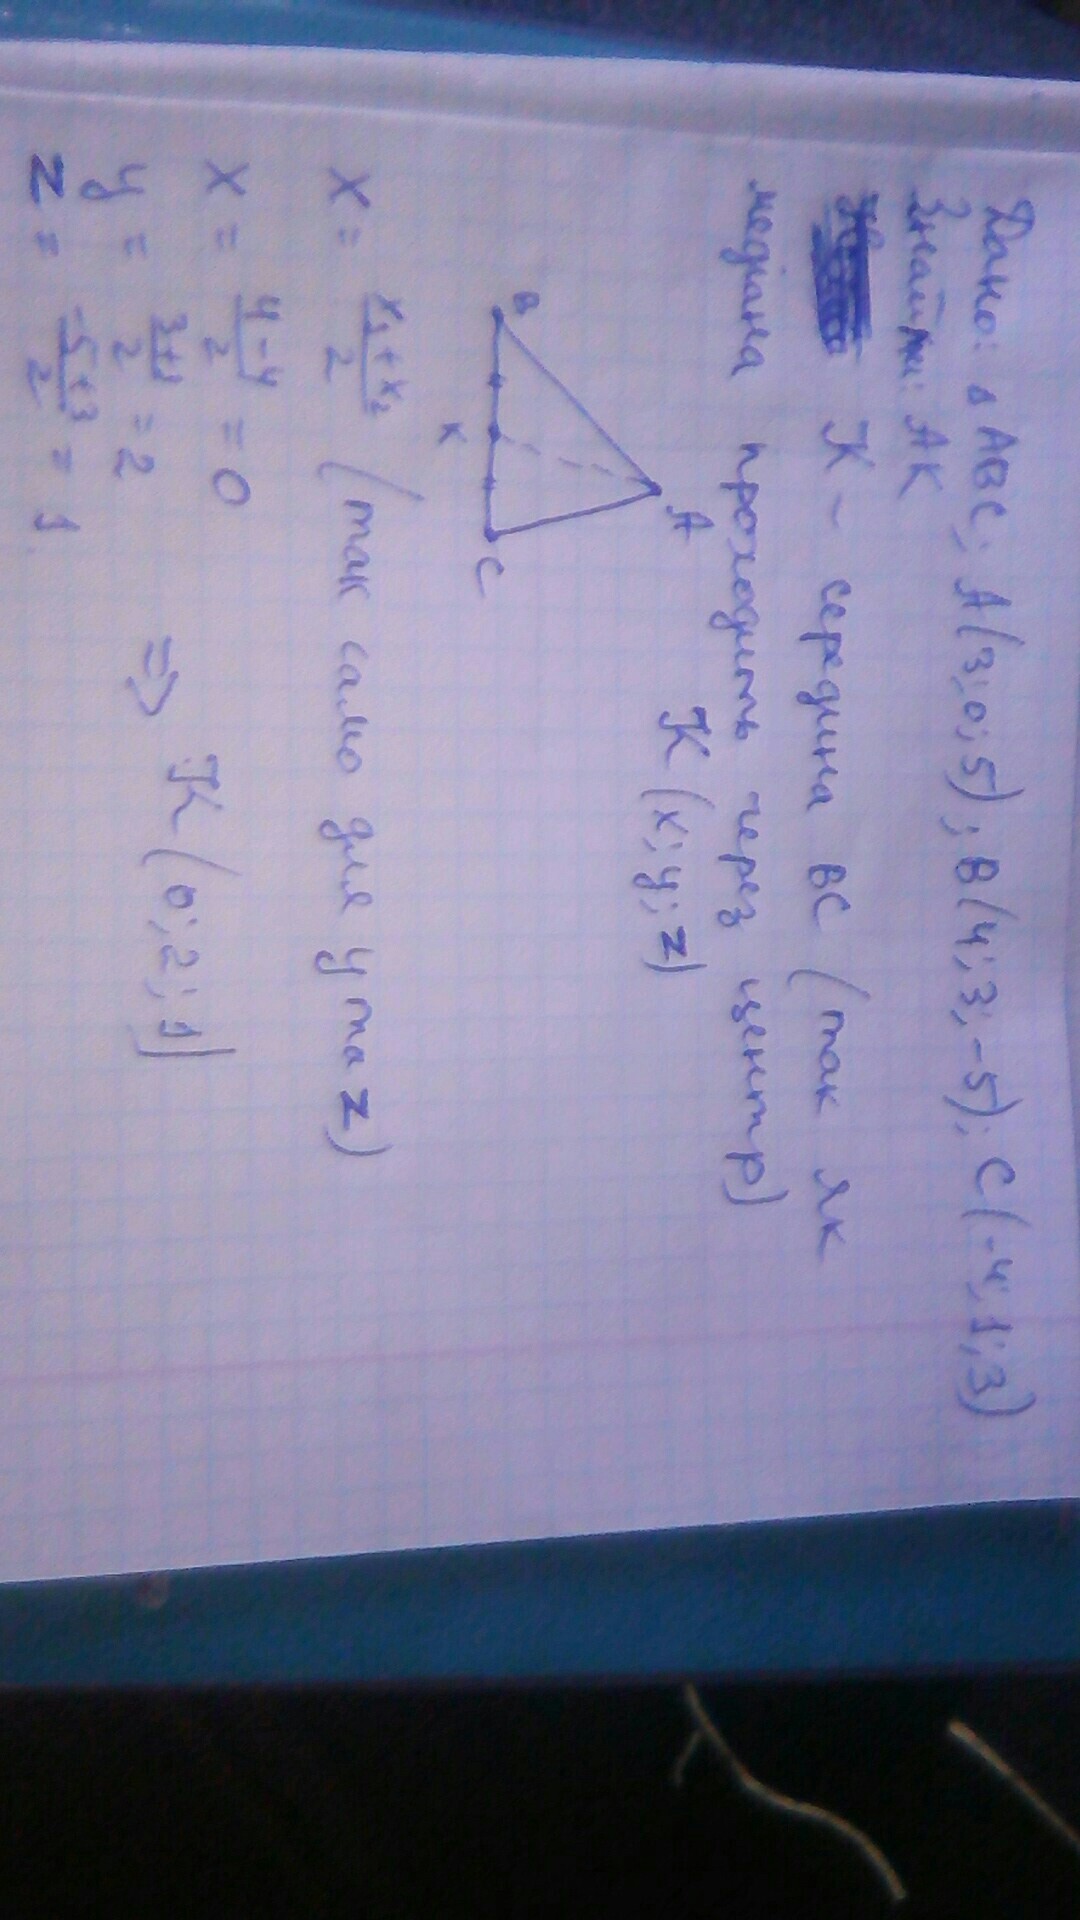 Дано: Δ ABC; A(3; 0; 5); B(4; 3; -5); C(-4; 1; 3)
Знайти: AK
K - середина BC (так як
медіана проходить через центр)
K (x; y; z)
A
B
K
C
x = x₁ + x₂ / 2 (так само для y та z)
x = 4 - 4 / 2 = 0
y = 3 + 1 / 2 = 2
z = -5 + 3 / 2 = 1
=> K (0; 2; 1)